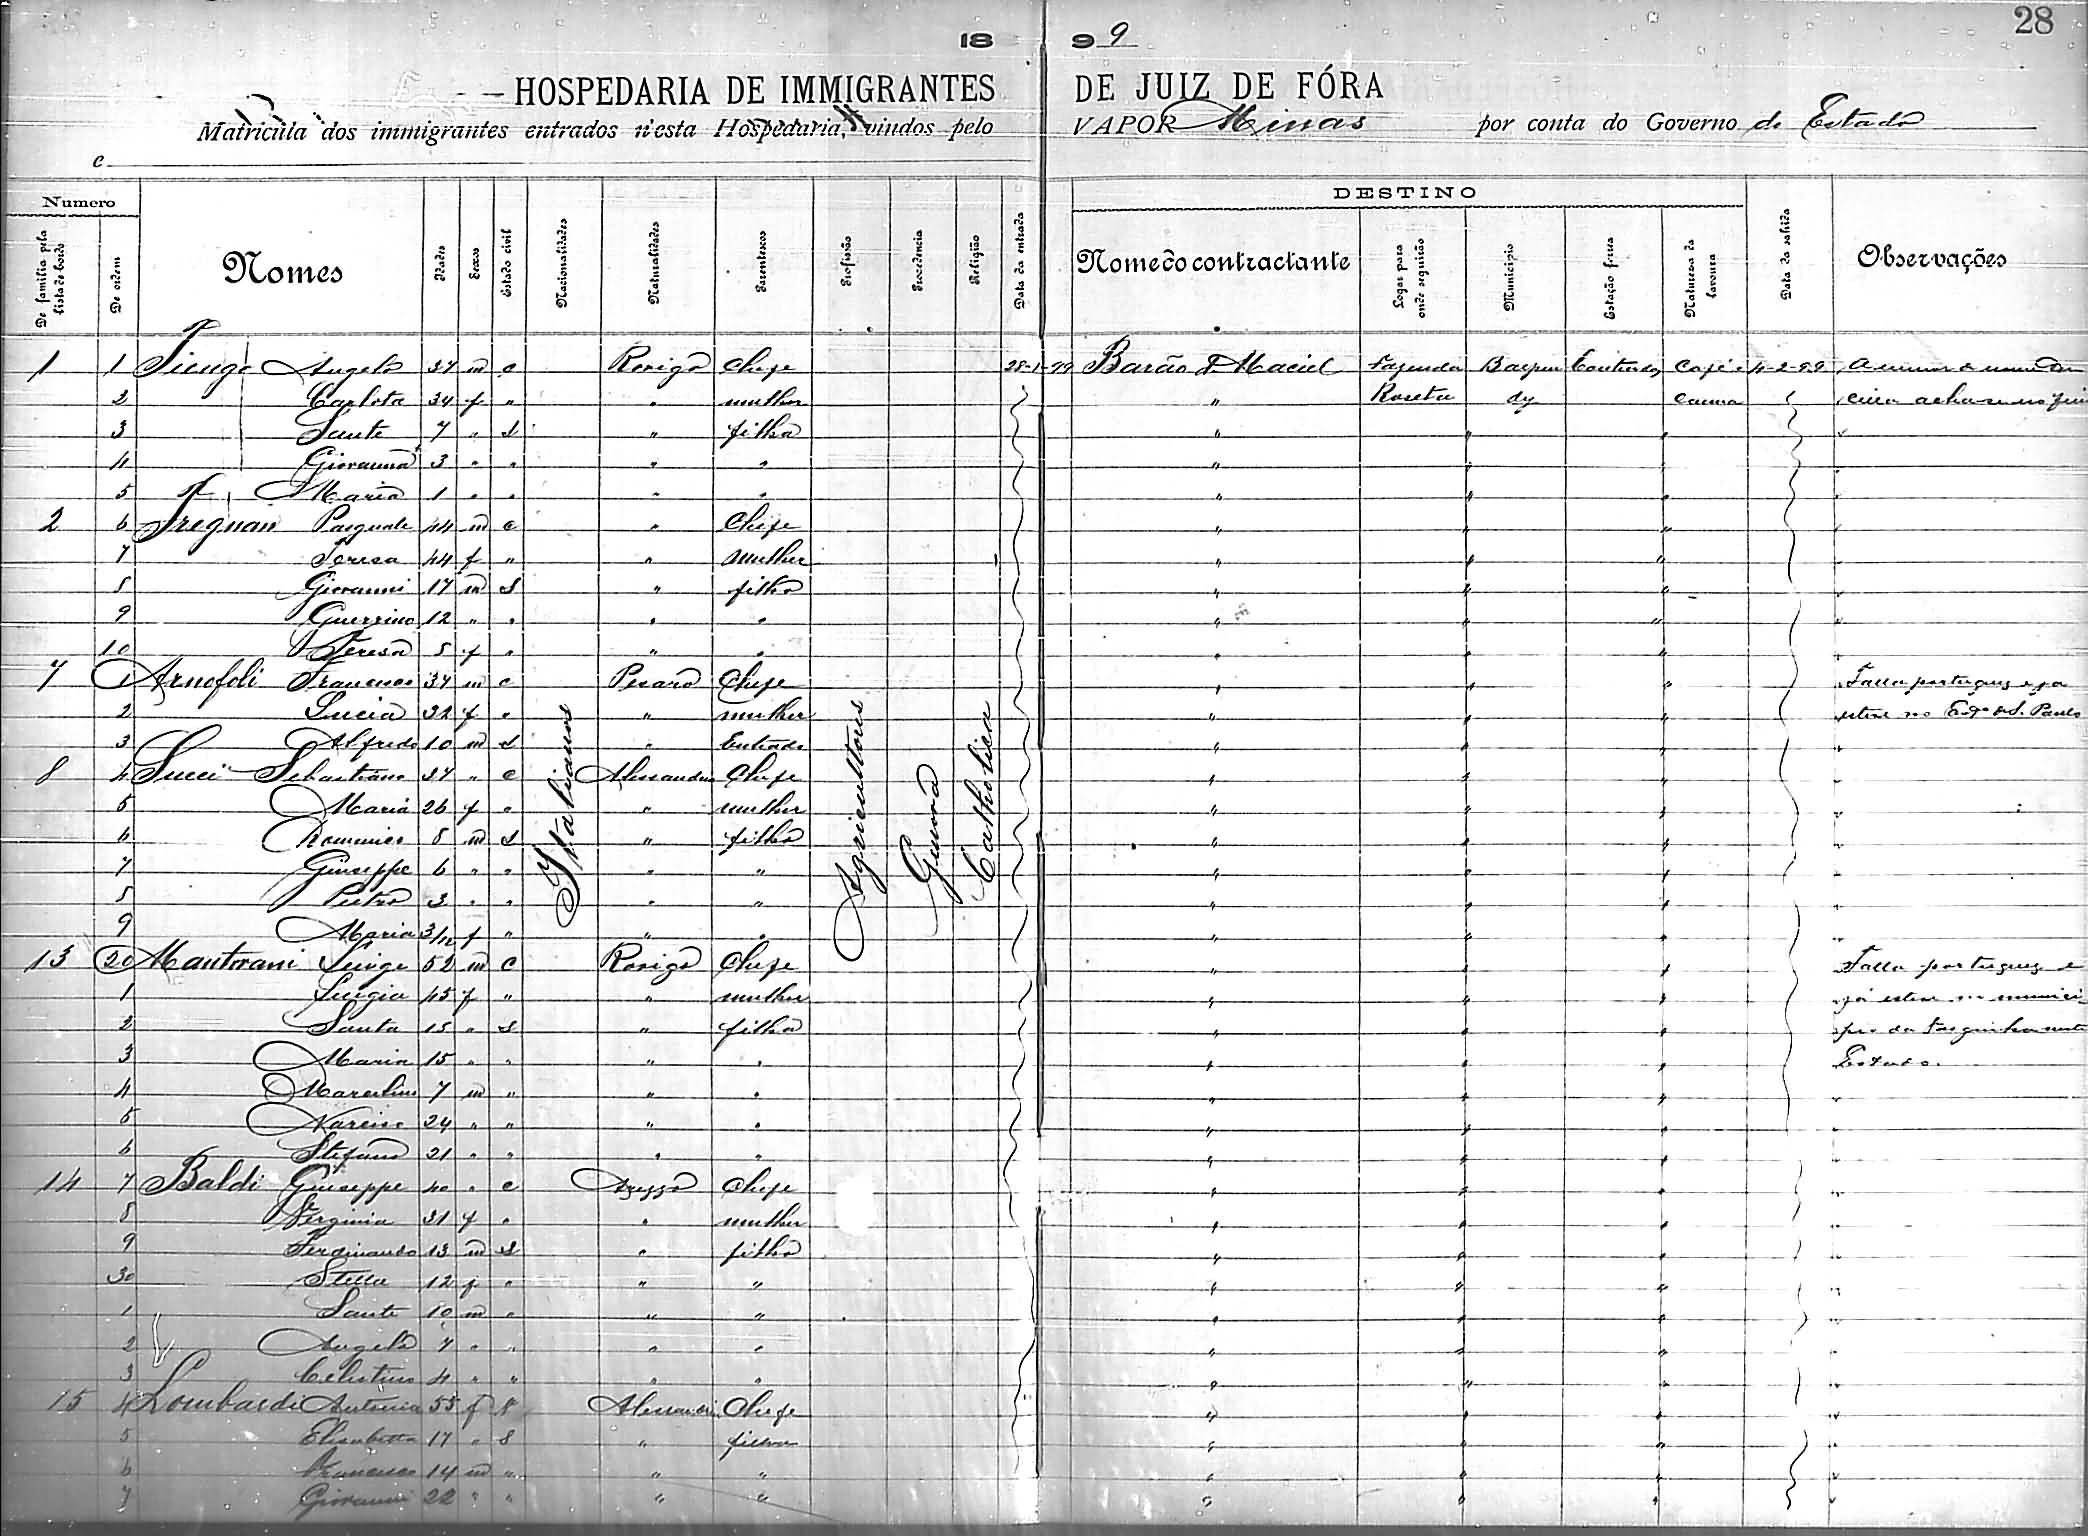 28
18 99
HOSPEDARIA DE IMMIGRANTES DE JUIZ DE FÓRA
Matricula dos immigrantes entrados n'esta Hospedaria, vindos pelo VAPOR Minas por conta do Governo do Estado
e
Numero DESTINO
De familia pela lista de bordo De ordem Nomes Idades Sexos Estado civil Nacionalidades Naturalidades Parentescos Profissão Procedencia Religião Data da entrada Nome do contractante Logar para onde seguirão Municipio Estação ferrea Natureza da lavoura Data da sahida Observações
1 1 Angelo 37 m c Rovigo Chefe 28-1-99 Barão Maciel Fazenda Café 4-2-99
2 Carlota 34 f " " mulher " Roseta canna
3 Sante 7 " S " filho "
4 Giovanna 3 " " " " "
5 Maria 1 " " " " "
2 6 Pasquale 44 m c " Chefe "
7 Teresa 44 f " " mulher "
8 Giovanni 17 m S " filho "
9 Guerrino 12 " " " " "
10 Teresa 5 f " " " "
7 1 Arnofoli Francesco 37 m c Pesaro Chefe " Falla portuguez e já
2 Lucia 32 f " " mulher " esteve no Est.º de S. Paulo
3 Alfredo 10 m S " Enteado "
8 4 Succi Sebastiano 37 " c Alessandria Chefe "
5 Maria 26 f " " mulher "
6 Domenico 8 m S " filho "
7 Giuseppe 6 " " " " "
8 Pietro 3 " " " " "
9 Maria 3/12 f " " " "
Italianos Agricultores Genova Catholica
13 20 Mantovani Luigi 52 m c Rovigo Chefe " Falla portuguez e
1 Luigia 45 f " " mulher " já esteve no munici-
2 Santa 15 " S " filho " pio da
3 Maria 15 " " " " " Estado.
4 Marcelino 7 m " " " "
5 24 " " " " "
6 Stefano 21 " " " " "
14 7 Baldi Giuseppe 40 " c Arezzo Chefe "
8 Verginia 31 f " " mulher "
9 Ferdinando 13 m S " filho "
30 Stella 12 f " " " "
1 Sante 10 m " " " "
2 Angelo 7 " " " " "
3 Celestino 4 " " " " "
15 4 Lombardi Antonia 55 f Alessandria Chefe "
5 Elisabetta 17 " S " filha "
6 Francesco 14 m " " " "
7 Giovanni 22 " " " " "